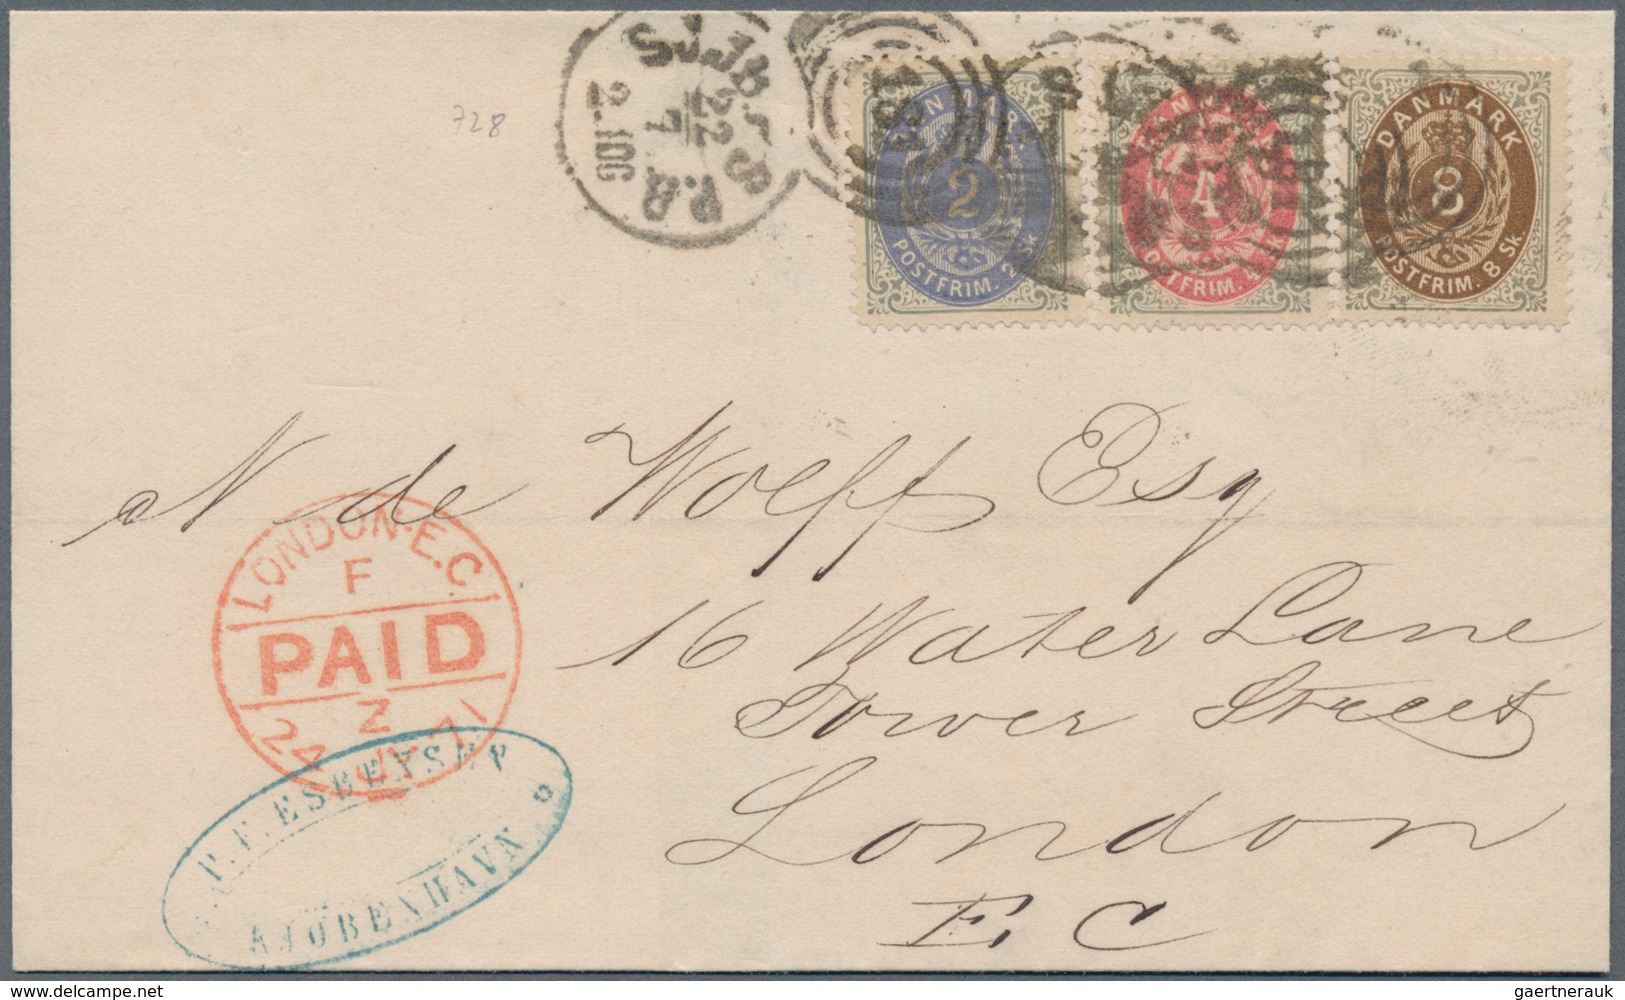 SJ.JB.
22
7
P.B.
728
181
DANMARK
2
POSTFRIM. 2 Sk
DANMARK
4
POSTFRIM. 4
DANMARK
8
POSTFRIM. 8 Sk.
N de Wolff Esq
16 Water Lane
Tower Street
London
E. C
LONDON-E.C.
F
PAID
Z
24 JY 71
KJÖBENHAVN
www.delcampe.net
gaertnerauk